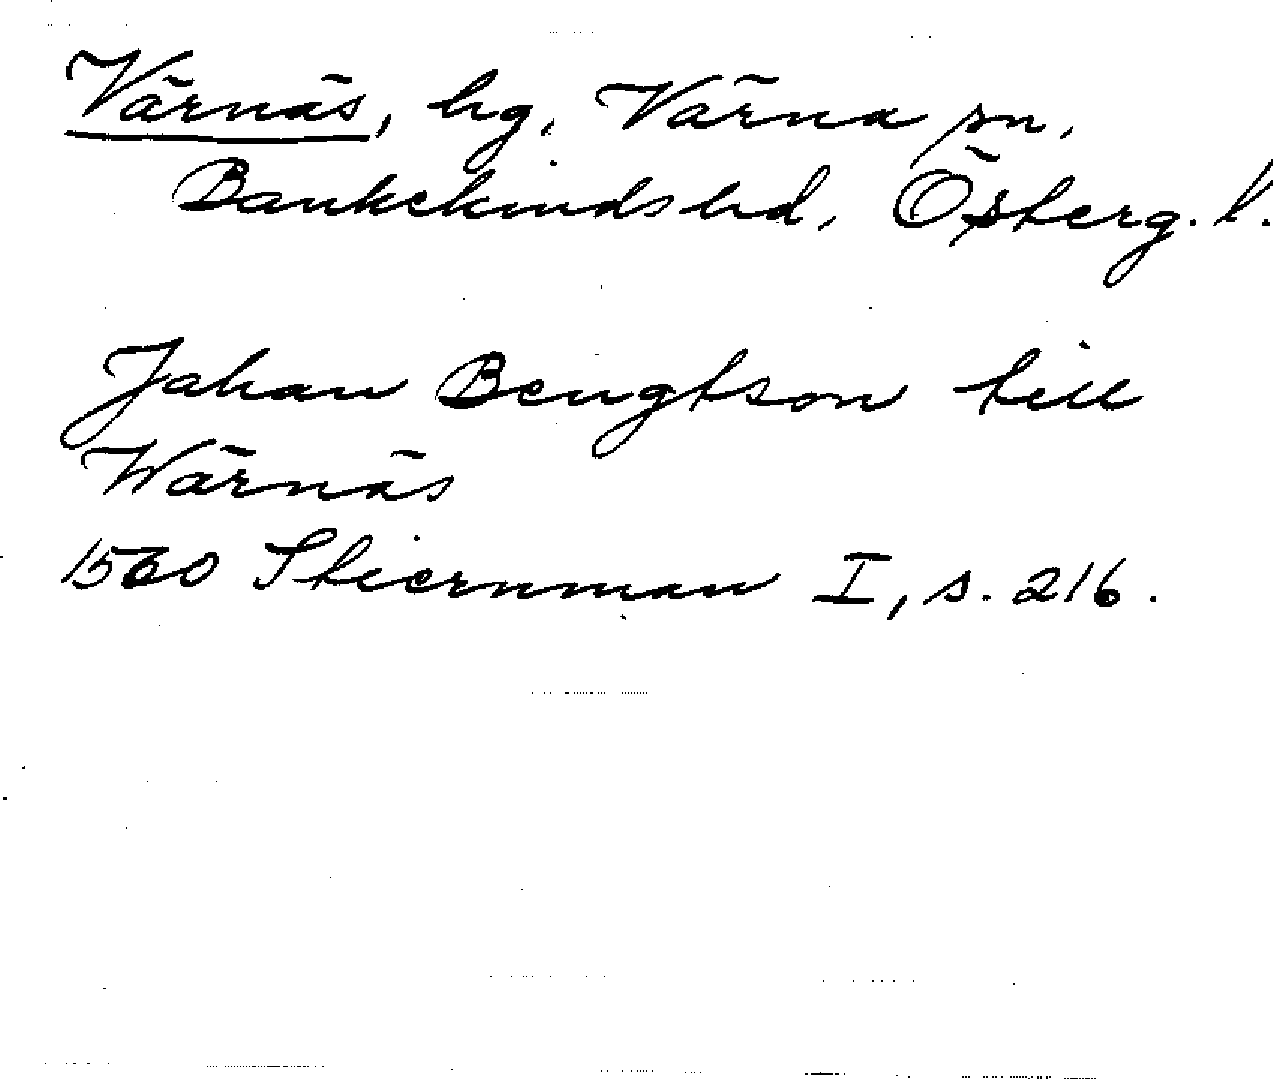 Värnäs, hg, Värna sn,
Bankekinds hd, Österg. l.
Johan Bengtson till
Wärnäs
1560 Stiernman I, s. 216.